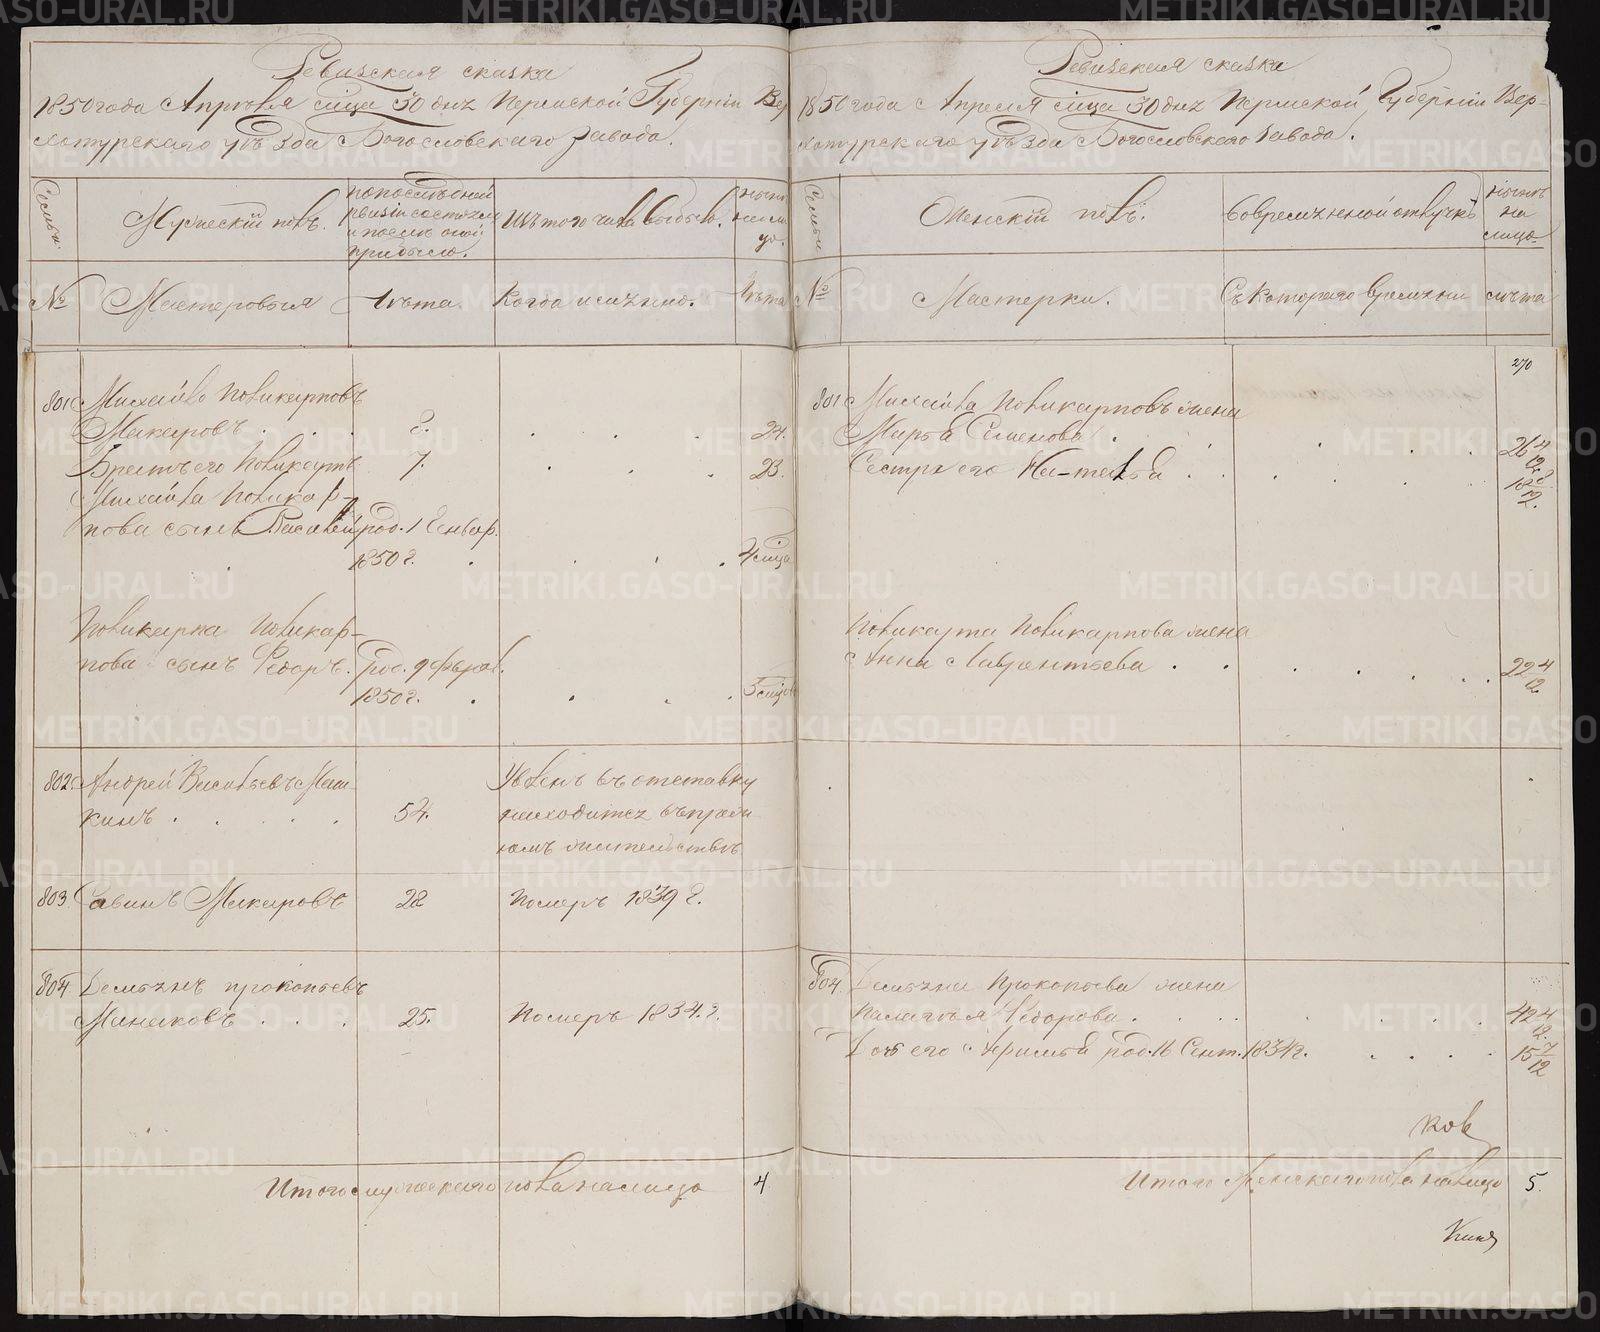 Ревизская сказка
1850 года Апреля м͠ца 30 дня Пермской Губернiи Вер
хотурскаго уѣзда Богословскаго завода.
Семьи.
Мужескiй полъ.
По последней
ревизiи состояло
и послѣ оной
прибыло.
Изъ того числа выбыло.
Нынѣ
на ли
цо.
№
Мастеровыя
Лѣта.
Когда именно.
Лѣта
801
Михайло Поликарповъ
Макаровъ
8.
24.
Братъ его Поликарпъ
7.
23.
Михайла Поликар-
пова сынъ Василей
род. 1 Генвар.
1850 г.
4 м͠ца
Поликарпа Поликар-
пова сынъ Федоръ.
род. 9 Феврал.
1850 г.
802.
Андрей Васильевъ Маш-
кинъ
54.
Уволенъ въ отставку
находится въ
жительствѣ
803
Савинъ Макаровъ
22
Померъ 1839 г.
804
Демьянъ Прокопьевъ
25.
Померъ 1834 г.
Итого мужескаго пола на лицо
4
Ревизская сказка
1850 года Апреля м͠ца 30 дня Пермской Губернiи Вер-
хотурскаго уѣзда Богословскаго завода.
Семьи
Женскiй полъ.
Во временной отлучкѣ
Нынѣ
на
лицо
№
Мастерки.
Съ котораго времяни
лѣта
270
801
Михайла Поликарповъ жена
Марѳа Семенова
26 4/12
Сестра его Наталья
18 8/12.
Поликарпа Поликарпова жена
Анна Лаврентьева
22 4/12
804
Демьяна Прокопьева жена
Палагѣя Федорова
42 4/12
Дочь его род. 16 Сент. 1834 г.
15 7/12
ков
Итого женскаго пола на лицо
5.